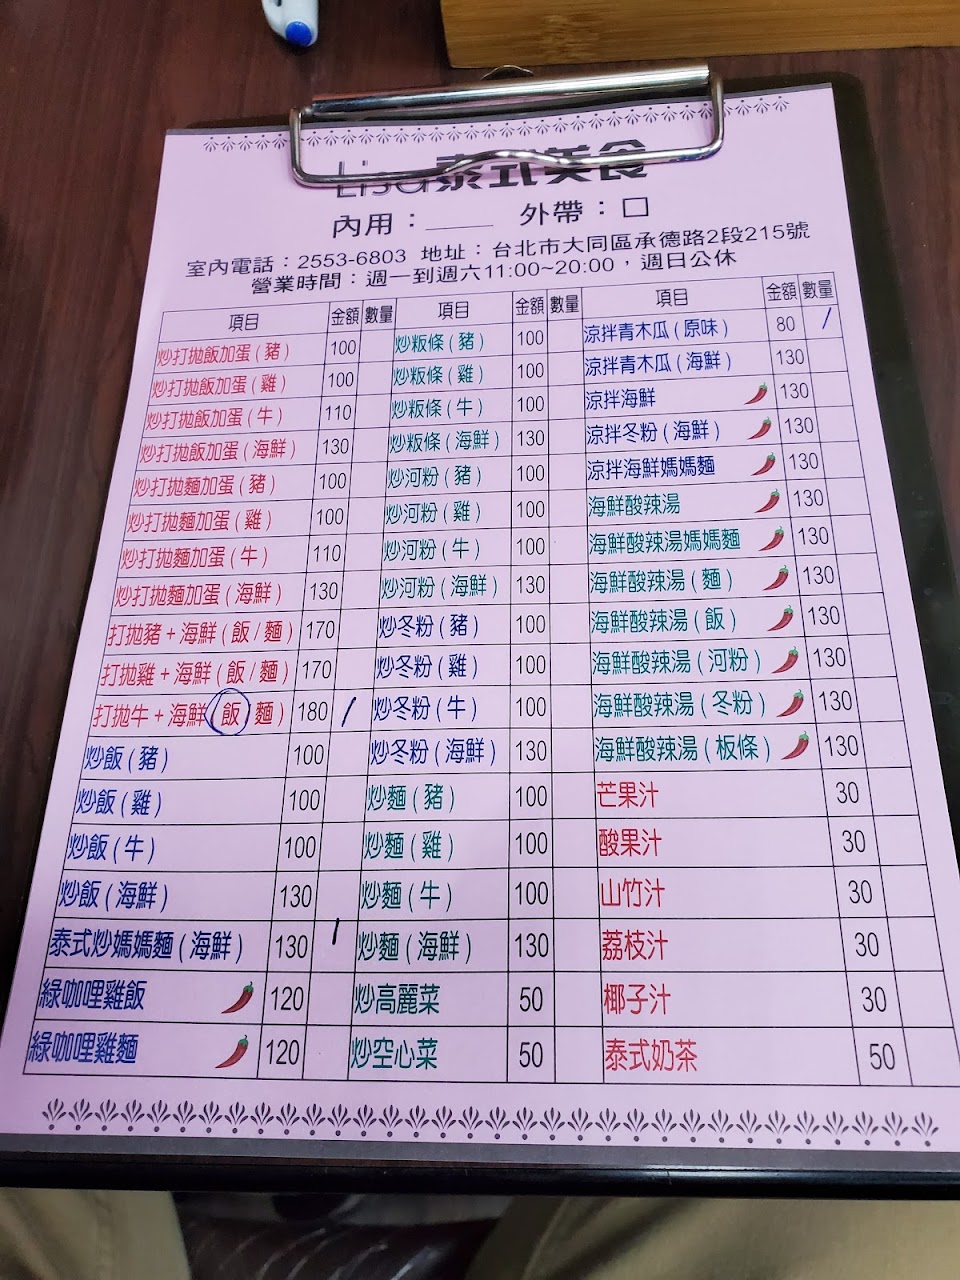 Lisa泰式美食
內用：____ 外帶：□
室內電話：2553-6803 地址：台北市大同區承德路2段215號
營業時間：週一到週六11:00~20:00，週日公休
項目 金額 數量 項目 金額 數量 項目 金額 數量
炒打拋飯加蛋(豬) 100 炒粄條(豬) 100 涼拌青木瓜(原味) 80 /
炒打拋飯加蛋(雞) 100 炒粄條(雞) 100 涼拌青木瓜(海鮮) 130
炒打拋飯加蛋(牛) 110 炒粄條(牛) 100 涼拌海鮮 130
炒打拋飯加蛋(海鮮) 130 炒粄條(海鮮) 130 涼拌冬粉(海鮮) 130
炒打拋麵加蛋(豬) 100 炒河粉(豬) 100 涼拌海鮮媽媽麵 130
炒打拋麵加蛋(雞) 100 炒河粉(雞) 100 海鮮酸辣湯 130
炒打拋麵加蛋(牛) 110 炒河粉(牛) 100 海鮮酸辣湯媽媽麵 130
炒打拋麵加蛋(海鮮) 130 炒河粉(海鮮) 130 海鮮酸辣湯(麵) 130
打拋豬+海鮮(飯/麵) 170 炒冬粉(豬) 100 海鮮酸辣湯(飯) 130
打拋雞+海鮮(飯/麵) 170 炒冬粉(雞) 100 海鮮酸辣湯(河粉) 130
打拋牛+海鮮(飯/麵) 180 / 炒冬粉(牛) 100 海鮮酸辣湯(冬粉) 130
炒飯(豬) 100 炒冬粉(海鮮) 130 海鮮酸辣湯(板條) 130
炒飯(雞) 100 炒麵(豬) 100 芒果汁 30
炒飯(牛) 100 炒麵(雞) 100 酸果汁 30
炒飯(海鮮) 130 炒麵(牛) 100 山竹汁 30
泰式炒媽媽麵(海鮮) 130 / 炒麵(海鮮) 130 荔枝汁 30
綠咖哩雞飯 120 炒高麗菜 50 椰子汁 30
綠咖哩雞麵 120 炒空心菜 50 泰式奶茶 50